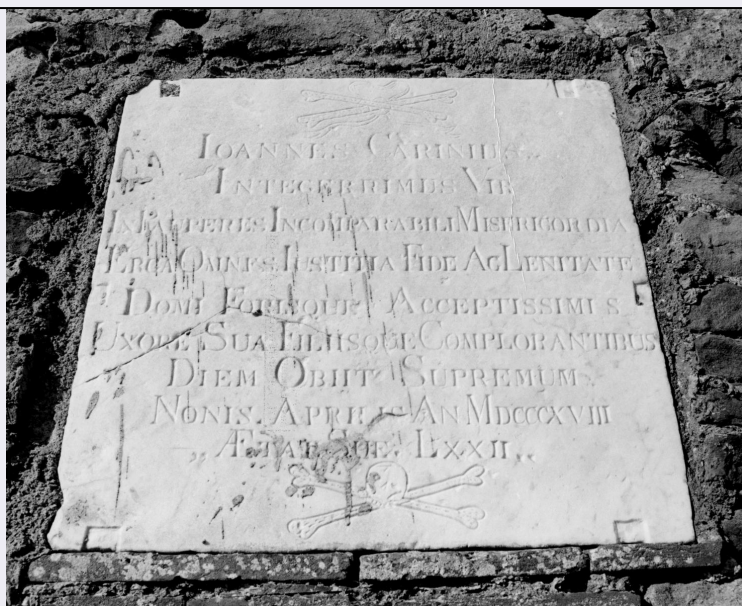 IOANNES CARINIUS„
INTEGERRIMUS VIR
IN PAUPERES INCOMPARABILI MISERICORDIA
ERGA OMNES IUSTITIA FIDE AC LENITATE
DOMI FORISQUE ACCEPTISSIMUS
UXORE SUA FILIISQUE COMPLORANTIBUS
DIEM OBIIT SUPREMUM
NONIS APRILIS AN MDCCCXVIII
„ÆTAT SUE. LXXII„